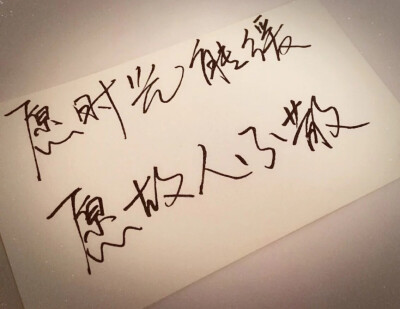 愿时光能缓
愿故人不散